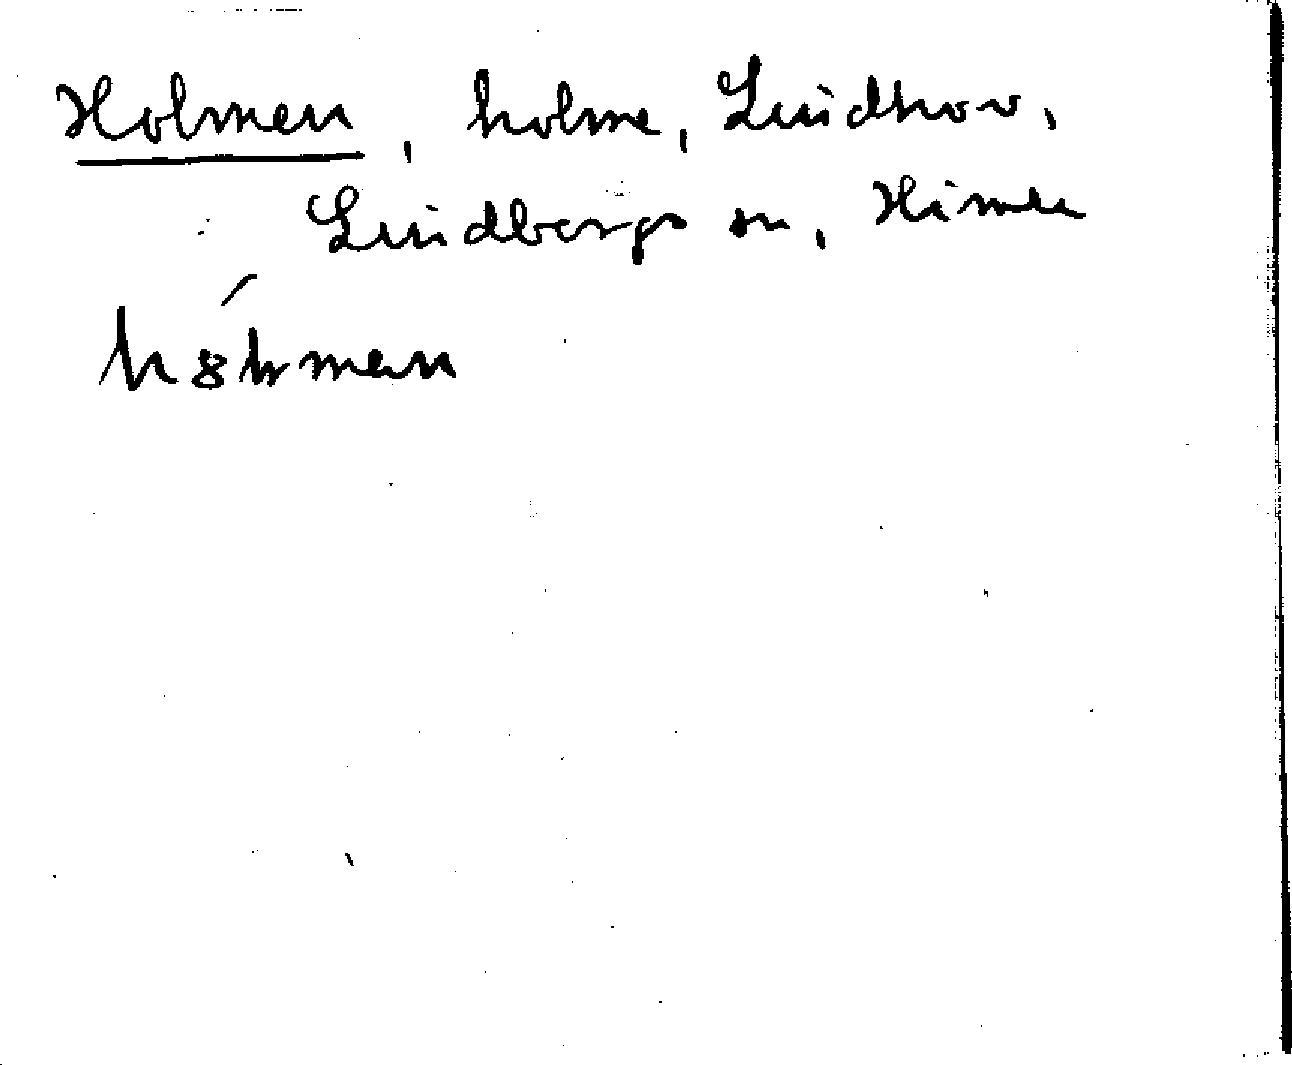 Holmen, holme, Lindhov,
Lindbergs sn, Himle